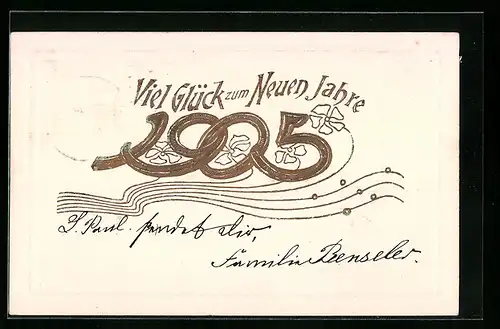 Viel Glück zum Neuen Jahre
1905
Paul. sendet dir,
Familie Benseler.